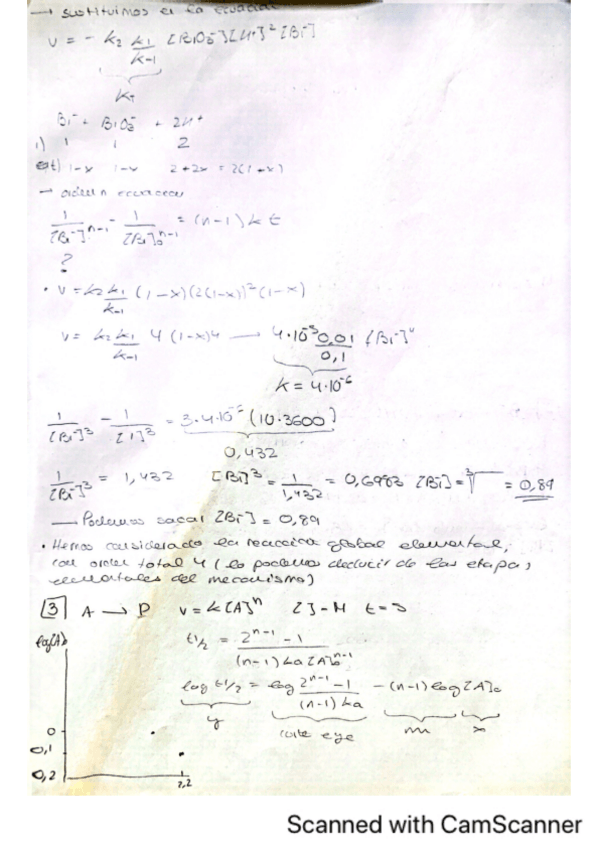 → sustituimos en la ecuación
v = - k₂ k₁/k₋₁ [BiO₃⁻][H⁺]² [Bi⁻]
Bi⁻ + BiO₃⁻ + 2H⁺
i) 1 1 2
est) 1-x 1-x 2+2x = 2(1-x)
— orden n ecuación
1/[Bi⁻]ⁿ⁻¹ - 1/[Bi]₀ⁿ⁻¹ = (n-1) k t
?
• v = k₂ k₁/k₋₁ (1-x)(2(1-x))² (1-x)
v = k₂ k₁/k₋₁ 4 (1-x)⁴ → 4·10⁻⁵ 0,01/0,1 [Bi⁻]⁴
k = 4·10⁻⁶
1/[Bi⁻]³ - 1/[1]³ = 3·4·10⁻⁶ (10·3600)
0,432
1/[Bi⁻]³ = 1,432 [Bi]³ = 1/1,432 = 0,6983 [Bi] = ³√ = 0,89
— Podemos sacar [Bi⁻] = 0,89
• Hemos considerado la reacción global elemental,
con orden total 4 (lo podemos deducir de las etapas
elementales del mecanismo)
3 A → P v = k[A]ⁿ [ ] - M t = s
log[A]
t1/2 = 2ⁿ⁻¹ - 1/(n-1) ka [A]₀ⁿ⁻¹
log t1/2 = log 2ⁿ⁻¹ - 1/(n-1) ka - (n-1) log [A]₀
y corte eje m x
0
0,1
0,2
2,2
Scanned with CamScanner